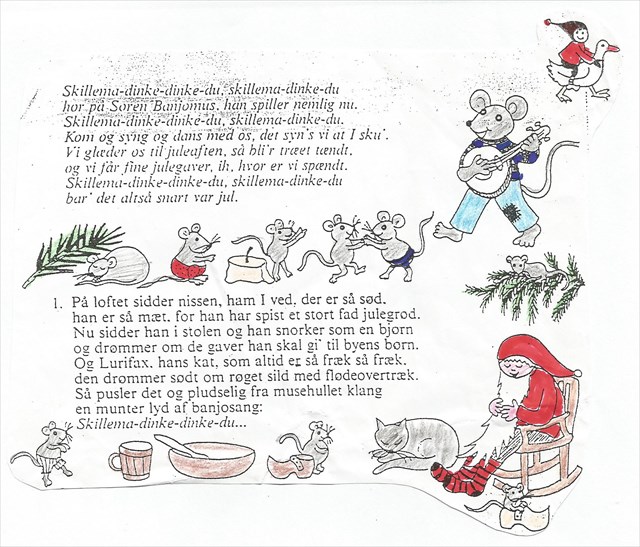 Skillema-dinke-dinke-du, skillema-dinke-du
hør på Søren Banjomus, han spiller nemlig nu.
Skillema-dinke-dinke-du, skillema-dinke-du.
Kom og syng og dans med os, det syn's vi at I sku'.
Vi glæder os til juleaften, så bli'r træet tændt,
og vi får fine julegaver, ih, hvor er vi spændt.
Skillema-dinke-dinke-du, skillema-dinke-du
bar' det altså snart var jul.
1. På loftet sidder nissen, ham I ved, der er så sød,
han er så mæt, for han har spist et stort fad julegrød.
Nu sidder han i stolen og han snorker som en bjørn
og drømmer om de gaver han skal gi' til byens børn.
Og Lurifax, hans kat, som altid er så fræk så fræk,
den drømmer sødt om røget sild med flødeovertræk.
Så pusler det og pludselig fra musehullet klang
en munter lyd af banjosang:
Skillema-dinke-dinke-du...